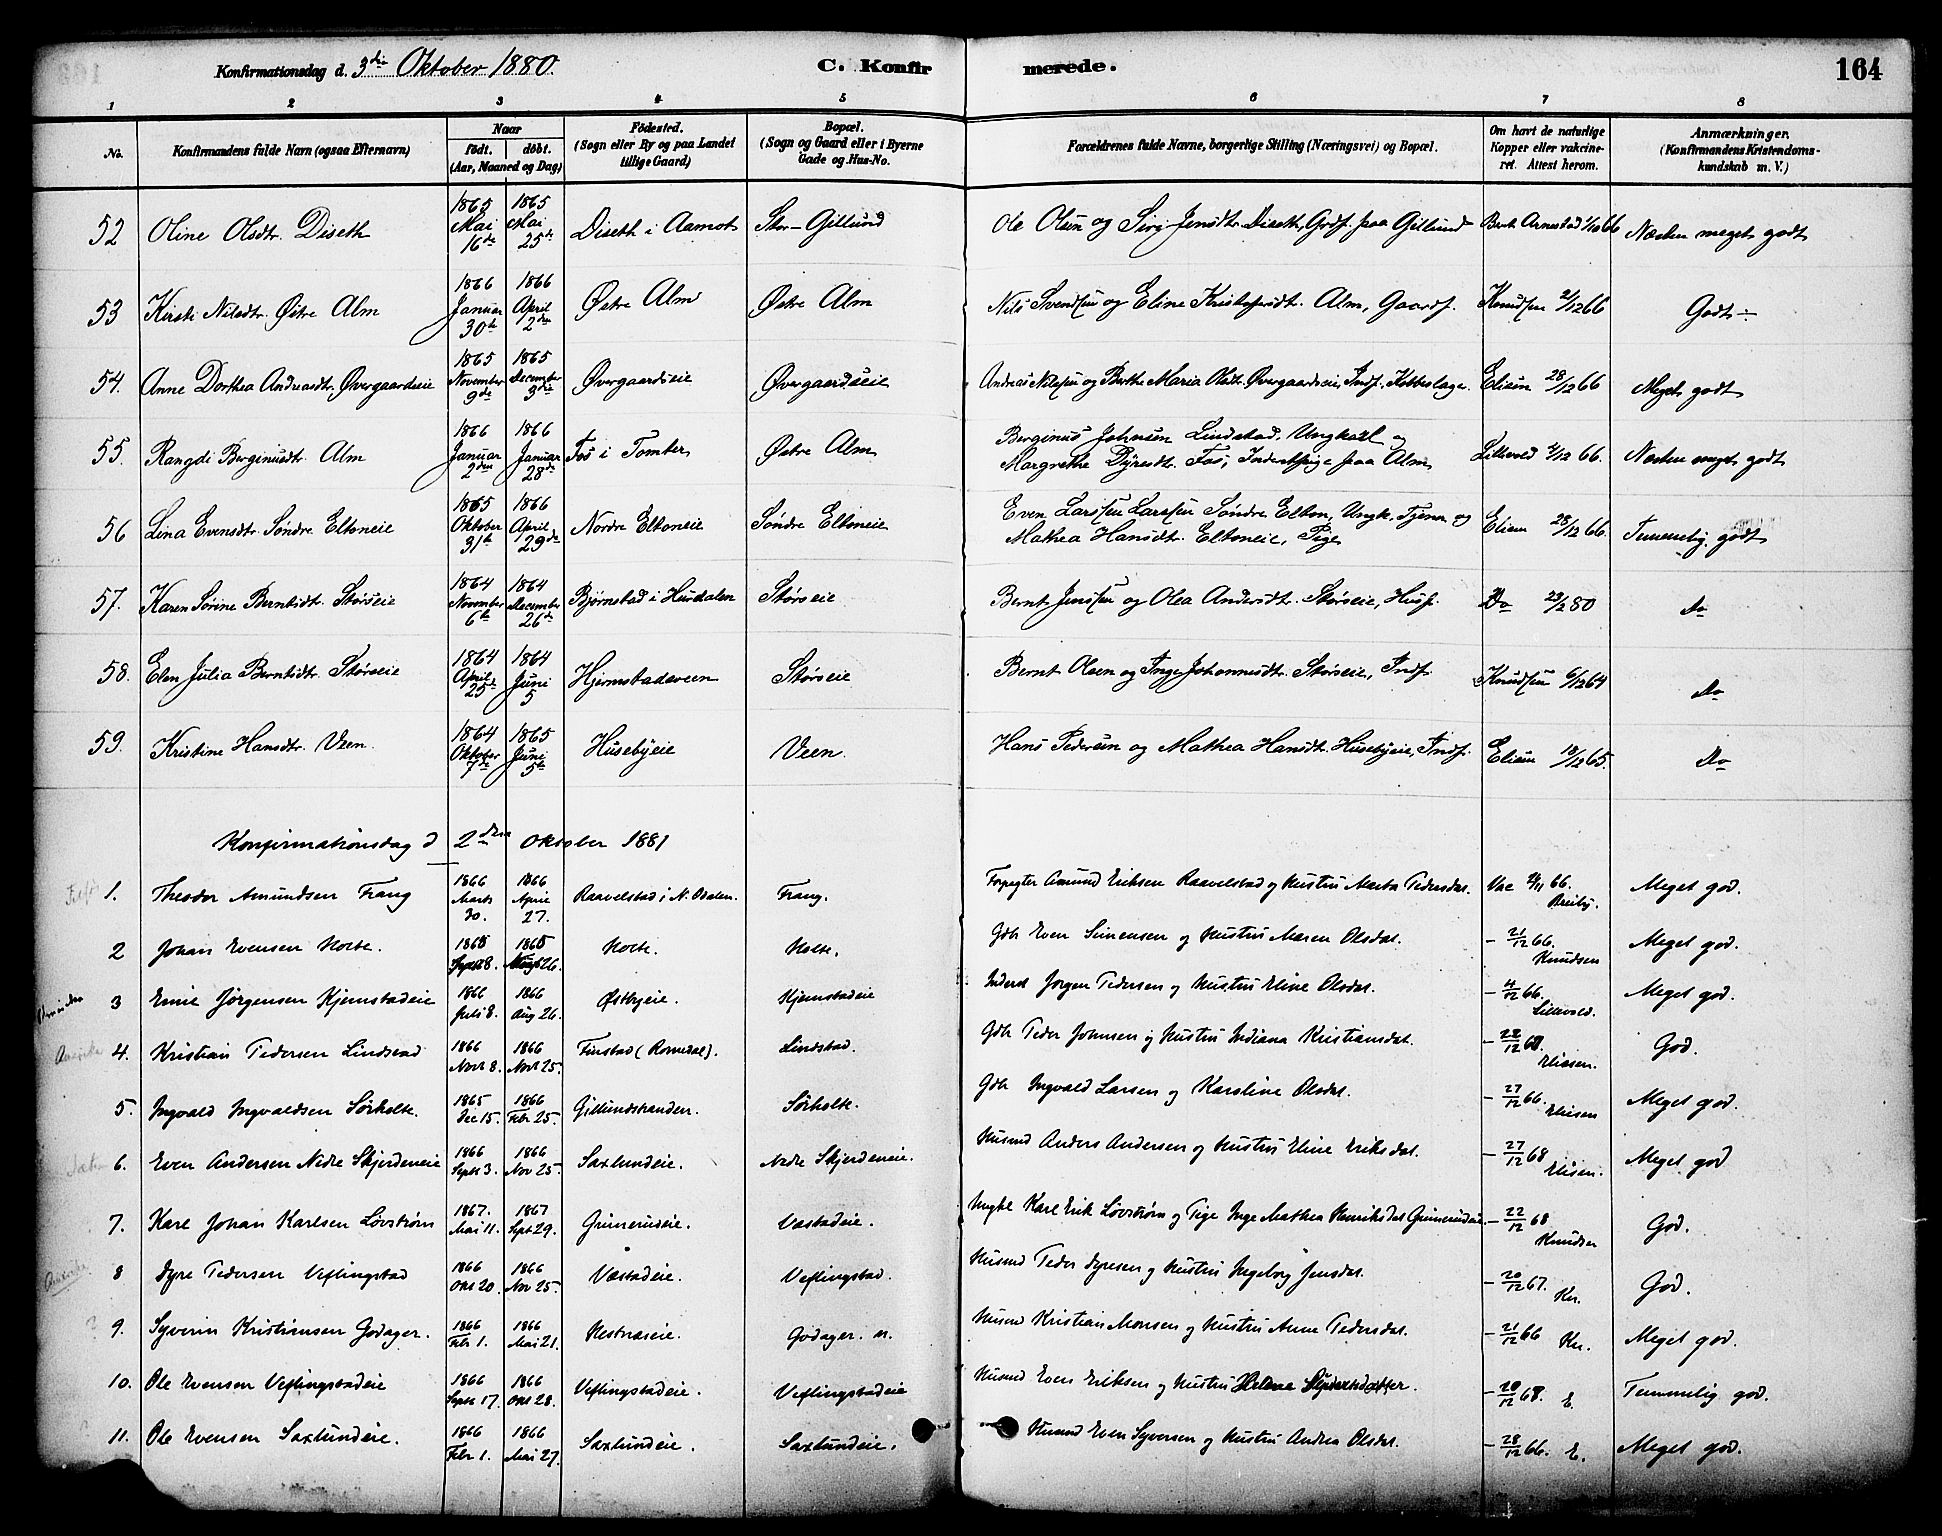 Konfirmationsdag d. 3die Oktober 1880. C. Konfirmerede. 164
1 2 3 4 5 6 7 8
No. Konfirmandens fulde Navn (ogsaa Efternavn) Naar født. døbt. (Aar, Maaned og Dag) Fødested. (Sogn eller By og paa Landet tillige Gaard) Bopæl. (Sogn og Gaard eller i Byerne Gade og Hus-No. Forældrenes fulde Navne, borgerlige Stilling (Næringsvei) og Bopæl. Om havt de naturlige Kopper eller vakcineret. Attest herom. Anmærkninger. (Konfirmandens Kristendomskundskab m. V.)
52 Oline Olsdtr. Diseth 1865 Mai 16de 1865 Mai 25de Diseth i Aamot Stor-Gillund Ole Olsen og Siri Jensdtr. Diseth, Grdf. paa Gillund Bert. Arnestad 1/10 66 Næsten meget godt
53 Kirsti Nilsdtr. Østre Alm 1866 Januar 30te 1866 April 2den Østre Alm Østre Alm Nils Svendsen og Eline Kristofersdtr. Alm, Gaardf. Knudsen 21/12 66 Godt
54. Anne Dorthea Andreasdtr. Øvergaardseie 1865 November 9de 1865 December 3die Øvergaardseie Øvergaardseie Andreas Nilssen og Berthe Maria Olsdtr. Øvergaardseie, Indf. Kobberslager. Eliesen 28/12 66 Meget godt
55. Rangdi Berginusdtr. Alm 1866 Januar 2den 1866 Januar 28de Fos i Tomter Østre Alm Berginus Johnsen Lindstad, Ungkarl og Margrethe Dyresdtr. Fos, Inderstpige paa Alm Lillevold 4/12 66. Næsten meget godt
56 Lina Evensdtr. Søndre Eltoneie 1865 Oktober 31te 1866 April 29de Nordre Eltoneie Søndre Eltoneie Even Larssen Søndre Elton, Ungk. Tjener og Mathea Hansdtr. Eltoneie, Pige Eliesen 28/12 66. Temmelig godt
57. Karen Sørine Berntsdtr. Størseie 1864 November 6te 1864 December 26de Bjørnstad i Hurdalen Størseie Bernt Jenssen og Olea Andersdtr. Størseie, Husf. Do 29/2 80 Do
58. Elen Julia Berntsdtr. Størseie 1864 April 25de 1864 Juni 5 Hjermstadsveen Størseie Bernt Olsen og Inge Johannesdtr. Størseie, Indf. Knudsen 6/12 64 Do
59. Kristine Hansdtr. Veen. 1864 Oktober 7de 1865 Juni 5te Husebyeie Veen. Hans Pedersen og Mathea Hansdt. Husebyeie, Indf. Eliesen 18/12 65. Do
Konfirmationsdag d 2den Oktober 1881
1. Theodor Amundsen Frang 1866 Marts 30. 1866 April 27. Raavelstad i N. Odalen. Frang. Forpagter Amund Eriksen Raavelstad og Hustru Marta Pedersdat. Vac 21/11 66. Breiby. Meget god.
2 Johan Evensen Holte. 1865 Sept 8. 1865 26. Holte. Holte. Gdb Even Simensen og Hustru Maren Olsdat. - 21/12 66. Knudsen Meget god.
3 Emil Jørgensen Hjemstadeie 1866 Juli 8. 1866 Aug 26. Østbyeie. Hjemstadeie Inderst Jørgen Pedersen og Hustru Eline Olsdat. - 4/12 66. Lillevold. Meget god.
Amerika 4. Kristian Pedersen Lindstad 1866 Novb 8. 1866 Novb 25. Finstad (Romedal). Lindstad. Gdb Peder Johnsen og Hustru Indiana Kristiansdat. - 22/12 68. Eliesen. God.
5. Ingvald Ingvaldsen Sørholte. 1865 Dec 15. 1866 Febr 25. Gillundstranden. Sørholte. Gdb Ingvald Larsen og Karoline Olsdat. - 27/12 66. Eliesen Meget god.
6. Even Andersen Nedre Skjerdeneie 1866 Septb 3. 1866 Nov 25. Saxlundeie. Nedre Skjerdeneie. Husmd Anders Andersen og Hustru Eline Eriksdat. - 27/12 68 Eliesen. Meget god
7. Karl Johan Karlsen Løvstrøm 1867. Mai 11. 1867 Sept 29. Grimerudeie. Vastadeie. Ungkl Karl Erik Løvstrøm og Pige Inge Mathea Henriksdat Grimerudeie - 22/12 68 Knudsen God.
Amerika. 8 Dyre Pedersen Veflingstad 1866 Okt 20. 1866 Nov 25. Væstadeie. Veflingstad. Husmd Peder Dyresen og Hustru Ingeborg Jensdat. - 20/12 67. Kn. God.
? 9. Syverin Kristiansen Godager. 1866 Febr 1. 1866 Mai 21. Hestnæseie. Godager. n. Husmd Kristian Monsen og Hustru Anne Pedersdat. - 21/12 66 Kn. Meget god.
10. Ole Evensen Veflingstadeie 1866 Septb 17. 1866 Okt 28. Veflingstadeie. Veflingstadeie Husmd Even Eriksen og Hustru Helene - 20/12 68. E. Temmelig god.
11. Ole Evensen Saxlundeie. 1866 Febr 1. 1866 Mai 27. Saxlundeie. Saxlundeie. Husmd Even Syversen og Hustru Andrea Olsdat. - 28/12 66. E. Meget god.